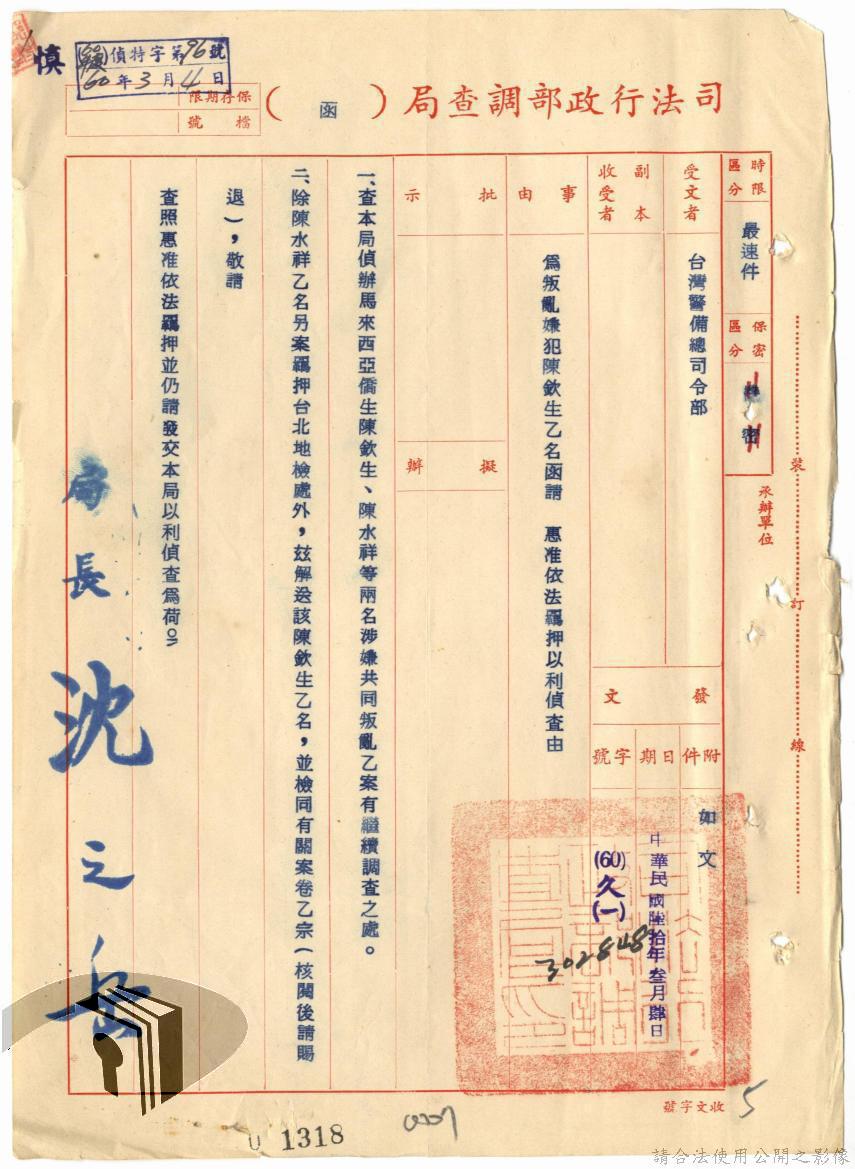 慎
偵特字第96號
60年3月4日
保存期限
檔號
司法行政部調查局(函)
時限區分
最速件
保密區分
密
受文者
台灣警備總司令部
副本收受者
事由
為叛亂嫌犯陳欽生乙名函請 惠准依法羈押以利偵查由
批示
擬辦
承辦單位
裝訂線
發文
附件
如文
日期
中華民國陸拾年叁月肆日
字號
(60)久(一)
302848
一、查本局偵辦馬來西亞僑生陳欽生、陳水祥等兩名涉嫌共同叛亂乙案有繼續調查之處。
二、除陳水祥乙名另案羈押台北地檢處外,玆解送該陳欽生乙名,並檢同有關案卷乙宗(核閱後請賜
退),敬請
查照惠准依法羈押並仍請發交本局以利偵查為荷。
局長沈之岳
收文字號
5
1318
請合法使用公開之影像